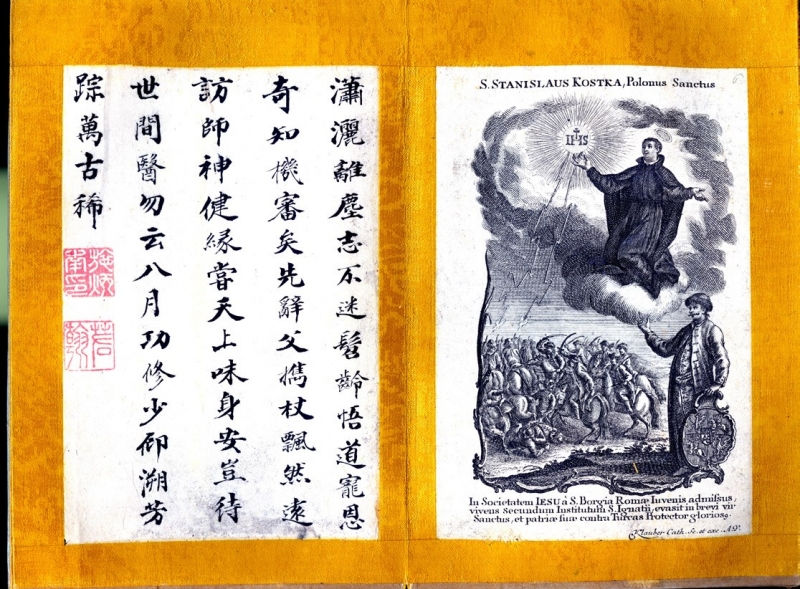 瀟灑離塵志不迷髫齡悟道寵恩
奇知機審矣先辭父攜杖飄然遠
訪師神健緣嘗天上味身安豈待
世間醫勿云八月功修少仰溯芳
踪萬古稀
S. STANISLAUS KOSTKA, Polonus Sanctus
IHS
In Societatem IESU à S. Borgia Romæ Iuvenis admißus,
vivens secundum Institutum S. Ignatii, evasit in brevi vir
Sanctus, et patriæ suæ contra Turcas Protector glorios9.
Klauber Cath. Sc. et exc. A.V.